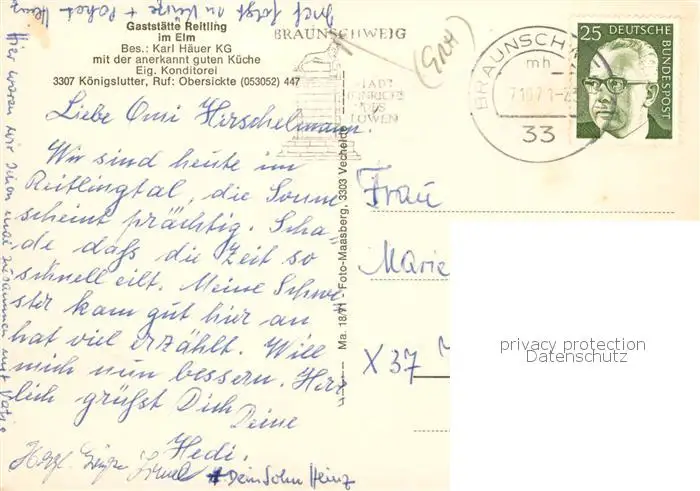 Brief folgt in Kürze + Paket Heinz
Gaststätte Reitling
im Elm
Bes.: Karl Häuer KG
mit der anerkannt guten Küche
Eig. Konditorei
3307 Königslutter, Ruf: Obersickte (053052) 447
BRAUNSCHWEIG
STADT
HEINRICHS
DES
LÖWEN
BRAUNSCHW
mh
33
25 DEUTSCHE
BUNDESPOST
Liebe Omi Hirschelmann!
Wir sind heute im
Reitlingtal, die Sonne
scheint prächtig. Scha-
de daß die Zeit so
schnell eilt. Meine Schwe-
ster kam gut hier an
hat viel erzählt. Will
mich nun bessern. Herz
lich grüßt Dich
Deine
Hedi.
Herzl. Grüße
+ Dein Sohn Heinz
Hier waren wir schon mal zusammen mit
Ma. 18/71 Foto-Maasberg, 3303 Vechelde
Frau
Marie
X 37
privacy protection
Datenschutz